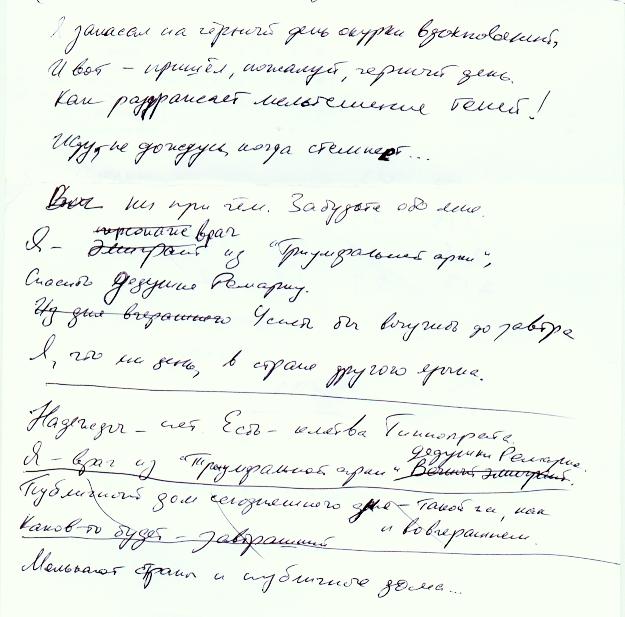 Я запасал на чёрный день окурки вдохновений,
И вот – пришёл, пожалуй, черный день.
Как раздражает мельтешение теней!
Жду, не дождусь, когда стемнеет...
Вы ни при чём. Забудьте обо мне.
персонаж врач
Я – эмигрант из "Триумфальной арки",
Спасибо дедушке Ремарку.
Из дня вчерашнего Успеть бы выучить до завтра
Я, что ни день, в стране другого языка.
Надежды – нет. Есть – клятва Гиппократа,
дедушки Ремарка.
Я – врач из "Триумфальной арки" Вечный эмигрант.
Публичный дом сегодняшнего дня – такой же, как
и во вчерашнем.
Каков-то будет – завтрашний
Мелькают страны и публичные дома...